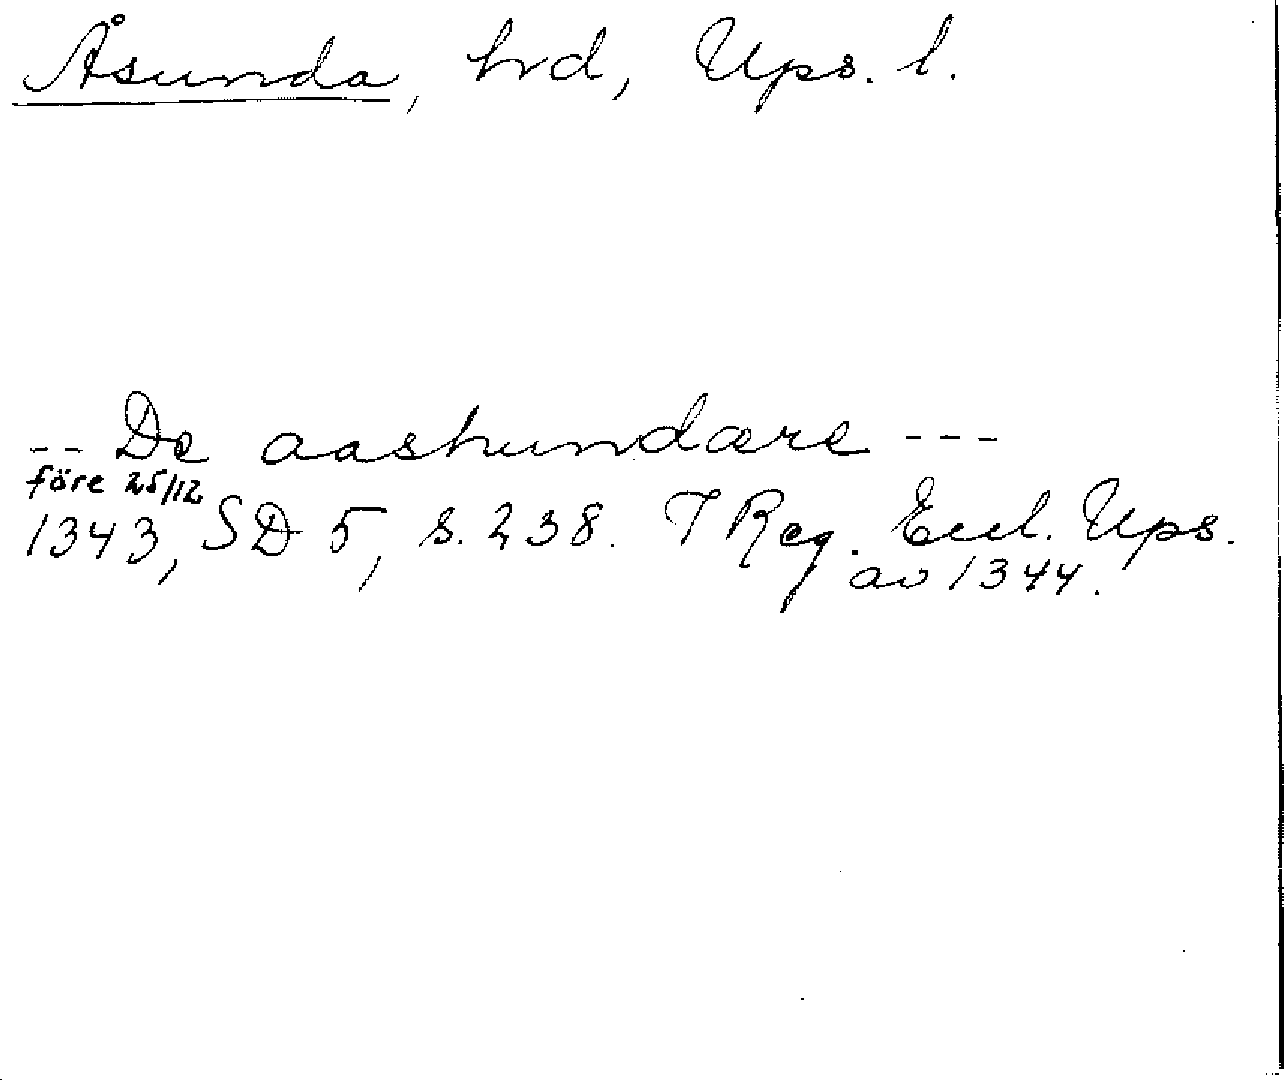 Åsunda, hrd, Ups. l.
-- De aashundære ---
före 25/12
1343, SD 5, s. 238. I Reg. Eccl. Ups.
av 1344.